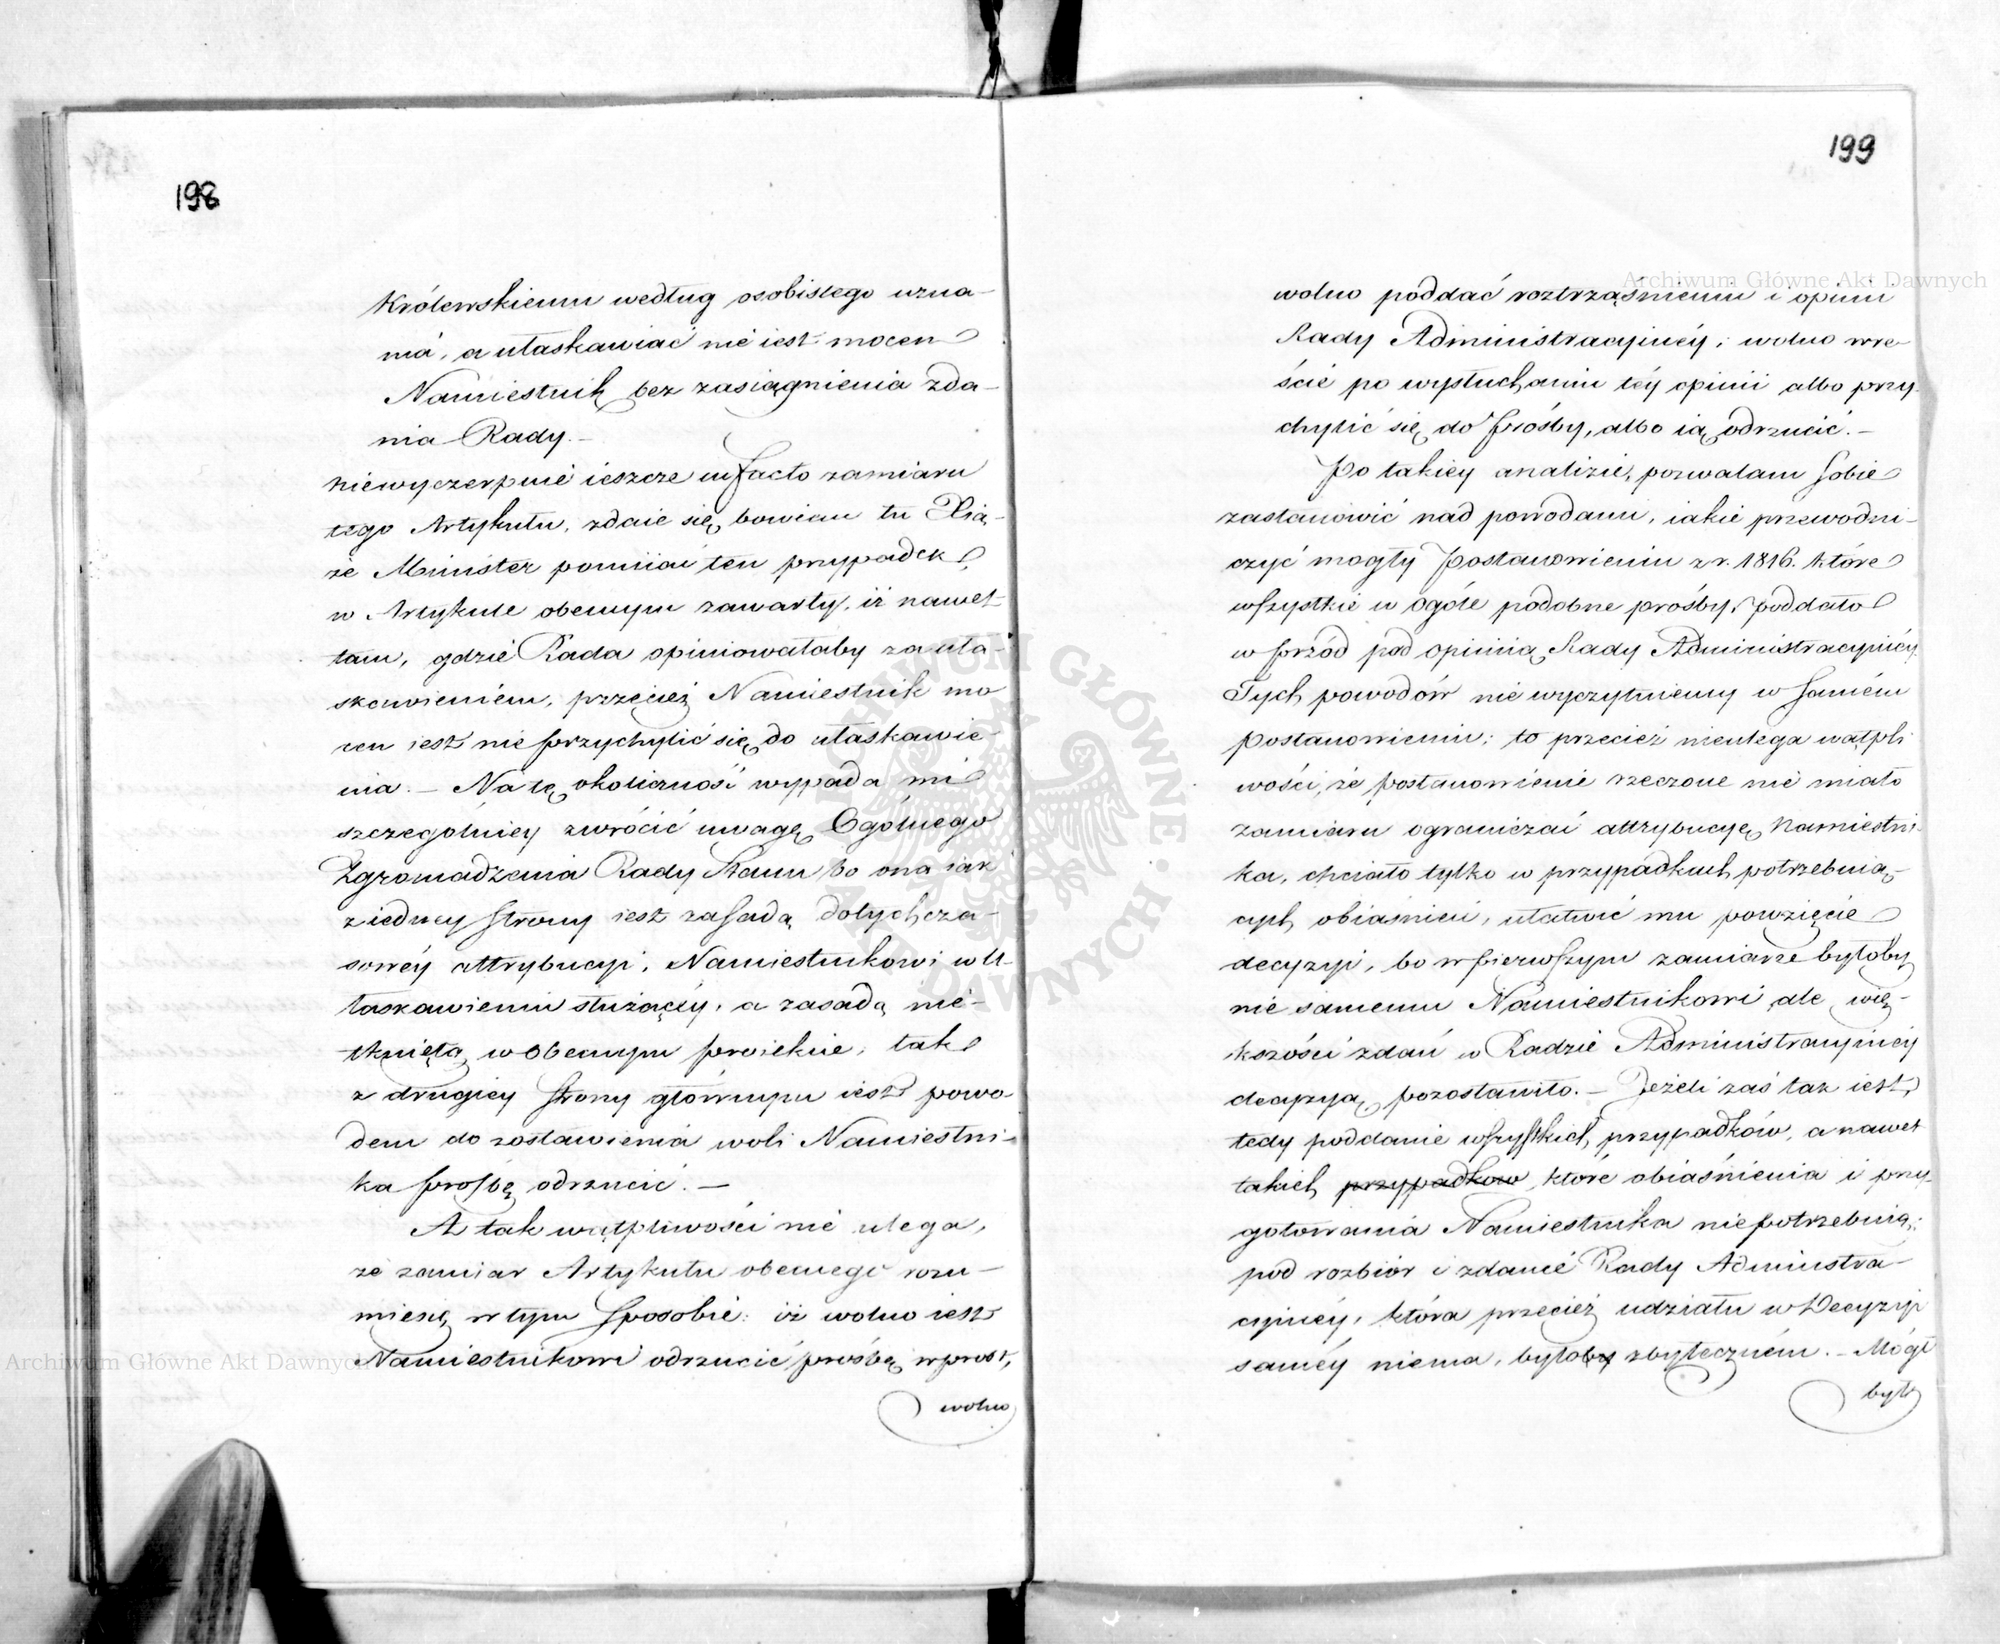 198
Królewskiemu według osobistego uzna-
nia, a ułaskawiać nie iest mocen
Namiestnik bez zasiągnienia zda-
nia Rady. –
niewyczerpnie ieszcze in facto zamiaru
tego Artykułu, zdaie się bowiem tu Xią-
że Minister pomiiać ten przypadek,
w Artykule obecnym zawarty, iż nawet
tam, gdzie Rada opiniowałaby za uła-
skawieniem, przecież Namiestnik mo
cen iest nie przychylić się do ułaskawie-
nia. – Na tę okoliczność wypada mi
szczegolniey zwrócić uwagę Ogólnego
Zgromadzenia Rady Stanu bo ona iak
z iedney strony iest zasadą dotychcza-
sowéy attrybucyi, Namiestnikowi w U-
łaskawieniu służącéy, a zasadą nie-
tkniętą w obecnym proiekcie, tak
z drugiey strony głównym iest powo-
dem do zostawienia woli Namiestni-
ka prośbę odrzucić. –
A tak wątpliwości nie ulega,
że zamiar Artykułu obecnego rozu-
mie się w tym sposobie: iż wolno iest
Namiestnikowi odrzucić prośbę wprost,
wolno
199
wolno poddać roztrząśnieniu i opinii
Rady Administracyinéy; wolno wre-
ście po wysłuchaniu téy opinii albo przy
chylić się do prośby, albo ią odrzucić. –
Po takiey analizie, pozwalam sobie
zastanowić nad powodami, iakie przewodni-
czyć mogły Postanowieniu z r. 1816. które
wszystkie w ogóle podobne prośby, poddało
wprzód pod opinią Rady Administracyinéy
Tych powodów nie wyczytuiemy w samém
Postanowieniu; to przecież nieulega wątpli
wości, że postanowienie rzeczone nie miało
zamiaru ograniczać attrybucyę Namiestni-
ka, chciało tylko w przypadkach potrzebuią-
cych obiaśnień, ułatwić mu powzięcie
decyzyi, bo w pierwszym zamiarze byłoby
nie samemu Namiestnikowi ale więk-
kszości zdań w Radzie Administracyiney
decyzyą pozostawiło. – Jeżeli zaś tak iest,
tedy poddanie wszystkich przypadków, a nawet
takich przypadkow które obiaśnienia i przy-
gotowania Namiestnika niepotrzebuią;
pod rozbiór i zdanie Rady Administra-
cyinéy, która przecież udziału w Decyzyi
saméy niema, byłoby zbyteczném. – Mógł
był
Archiwum Główne Akt Dawnych
Archiwum Główne Akt Dawnych
ARCHIWUM GŁÓWNE AKT DAWNYCH